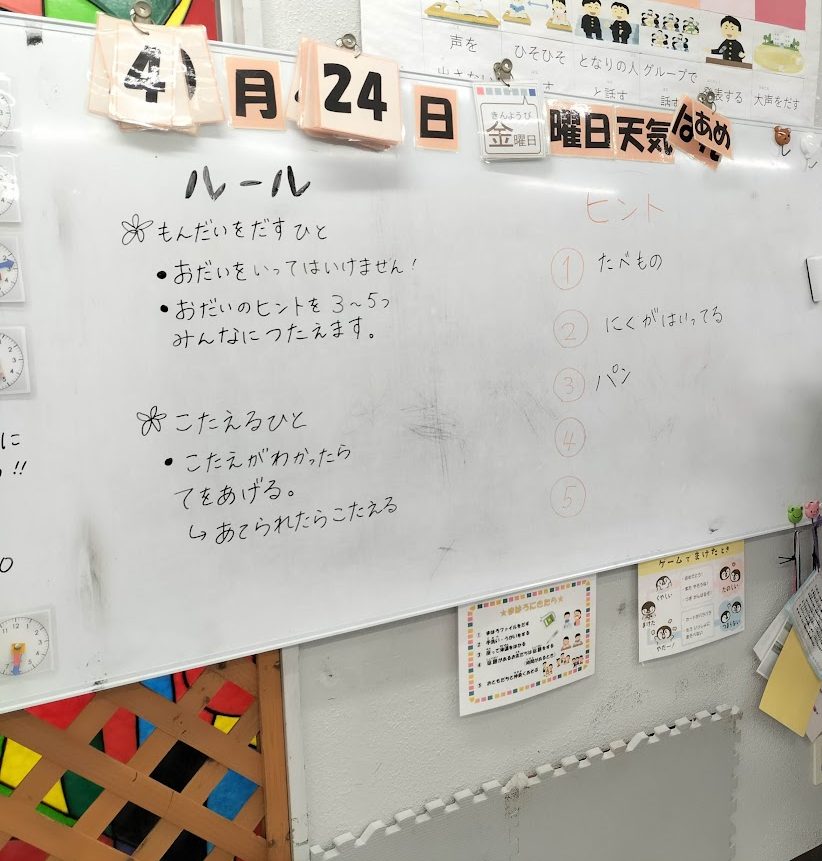 声を
ひそひそ
となりの人
グループで
と話す
話す
発表する
大声をだす
4月24日
きんようび
金曜日
曜日天気
あめ
ルール
もんだいをだすひと
・おだいをいってはいけません!
・おだいのヒントを3〜5つ
みんなにつたえます。
こたえるひと
・こたえがわかったら
てをあげる。
↳あてられたらこたえる
ヒント
① たべもの
② にくがはいってる
③ パン
④
⑤
に
!!
ゲームでまけたとき
くやしい
たのしい
まけた
やだー!
つまらない
★まほうにきたら★